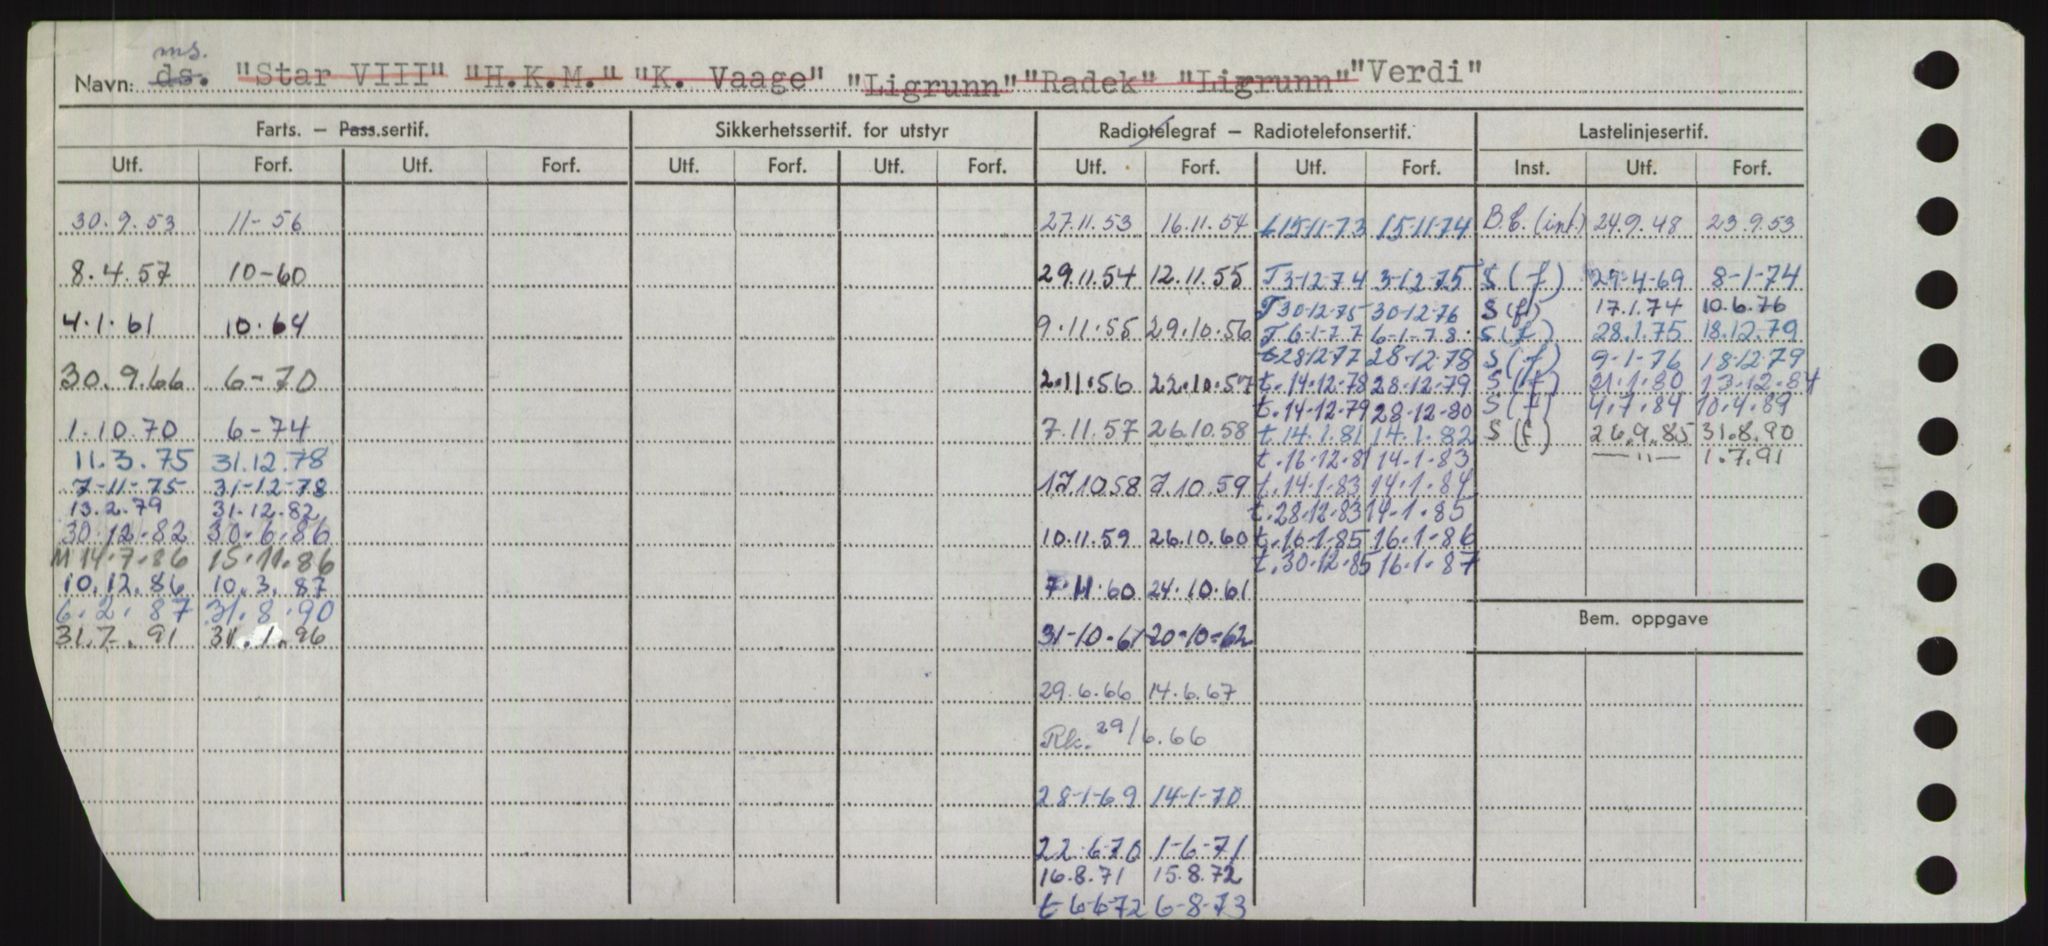 ms.
Navn: ds. "Star VIII" "H.K.M." "K. Vaage" "Ligrunn" "Radek" "Ligrunn" "Verdi"
Farts. – Pass.sertif. Sikkerhetssertif. for utstyr Radiotelegraf – Radiotelefonsertif. Lastelinjesertif.
Utf. Forf. Utf. Forf. Utf. Forf. Utf. Forf. Utf. Forf. Utf. Forf. Inst. Utf. Forf.
30.9.53 11-56 27.11.53 16.11.54 t 15-11-73 15-11-74 B.C. (int.) 24.9.48 23.9.53
8.4.57 10-60 29.11.54 12.11.55 T 3-12-74 3-12-75 S (f) 29-4-69 8-1-74
T 30-12-75 30-12-76 S (f) 17.1.74 10.6.76
4.1.61 10.64 9.11.55 29.10.56 T 6-1-77 6-1-78 S (f) 28.1.75 18.12.79
t 28-12-77 28-12-78 S (f) 9-1-76 18-12-79
30.9.66 6-70 2.11.56 22.10.57 t. 14-12-78 28-12-79 S (f) 21.1.80 13.12.84
t. 14-12-79 28-12-80 S (f) 4.7.84 10.4.89
1.10.70 6-74 7.11.57 26.10.58 t. 14.1.81 14.1.82 S (f) 26.9.85 31.8.90
11.3.75 31.12.78 t. 16-12-81 14-1-83 — " — 1.7.91
7-11-75 31-12-78 17.10.58 7.10.59 t. 14.1.83 14.1.84
13.2.79 31.12.82 t. 28-12-83 14-1-85
30.12.82 30.6.86 10.11.59 26.10.60 t. 16-1-85 16-1-86
M 14.7.86 15.11.86 t. 30-12-85 16-1-87
10.12.86 10.3.87 7.11.60 24.10.61
6.2.87 31.8.90
Bem. oppgave
31.7.91 31.1.96 31-10-61 20-10-62
29.6.66 14.6.67
Rk. 29/6.66
28-1-69 14-1-70
22-6-70 1-6-71
16.8.71 15.8.72
t 6-6-72 6-8-73